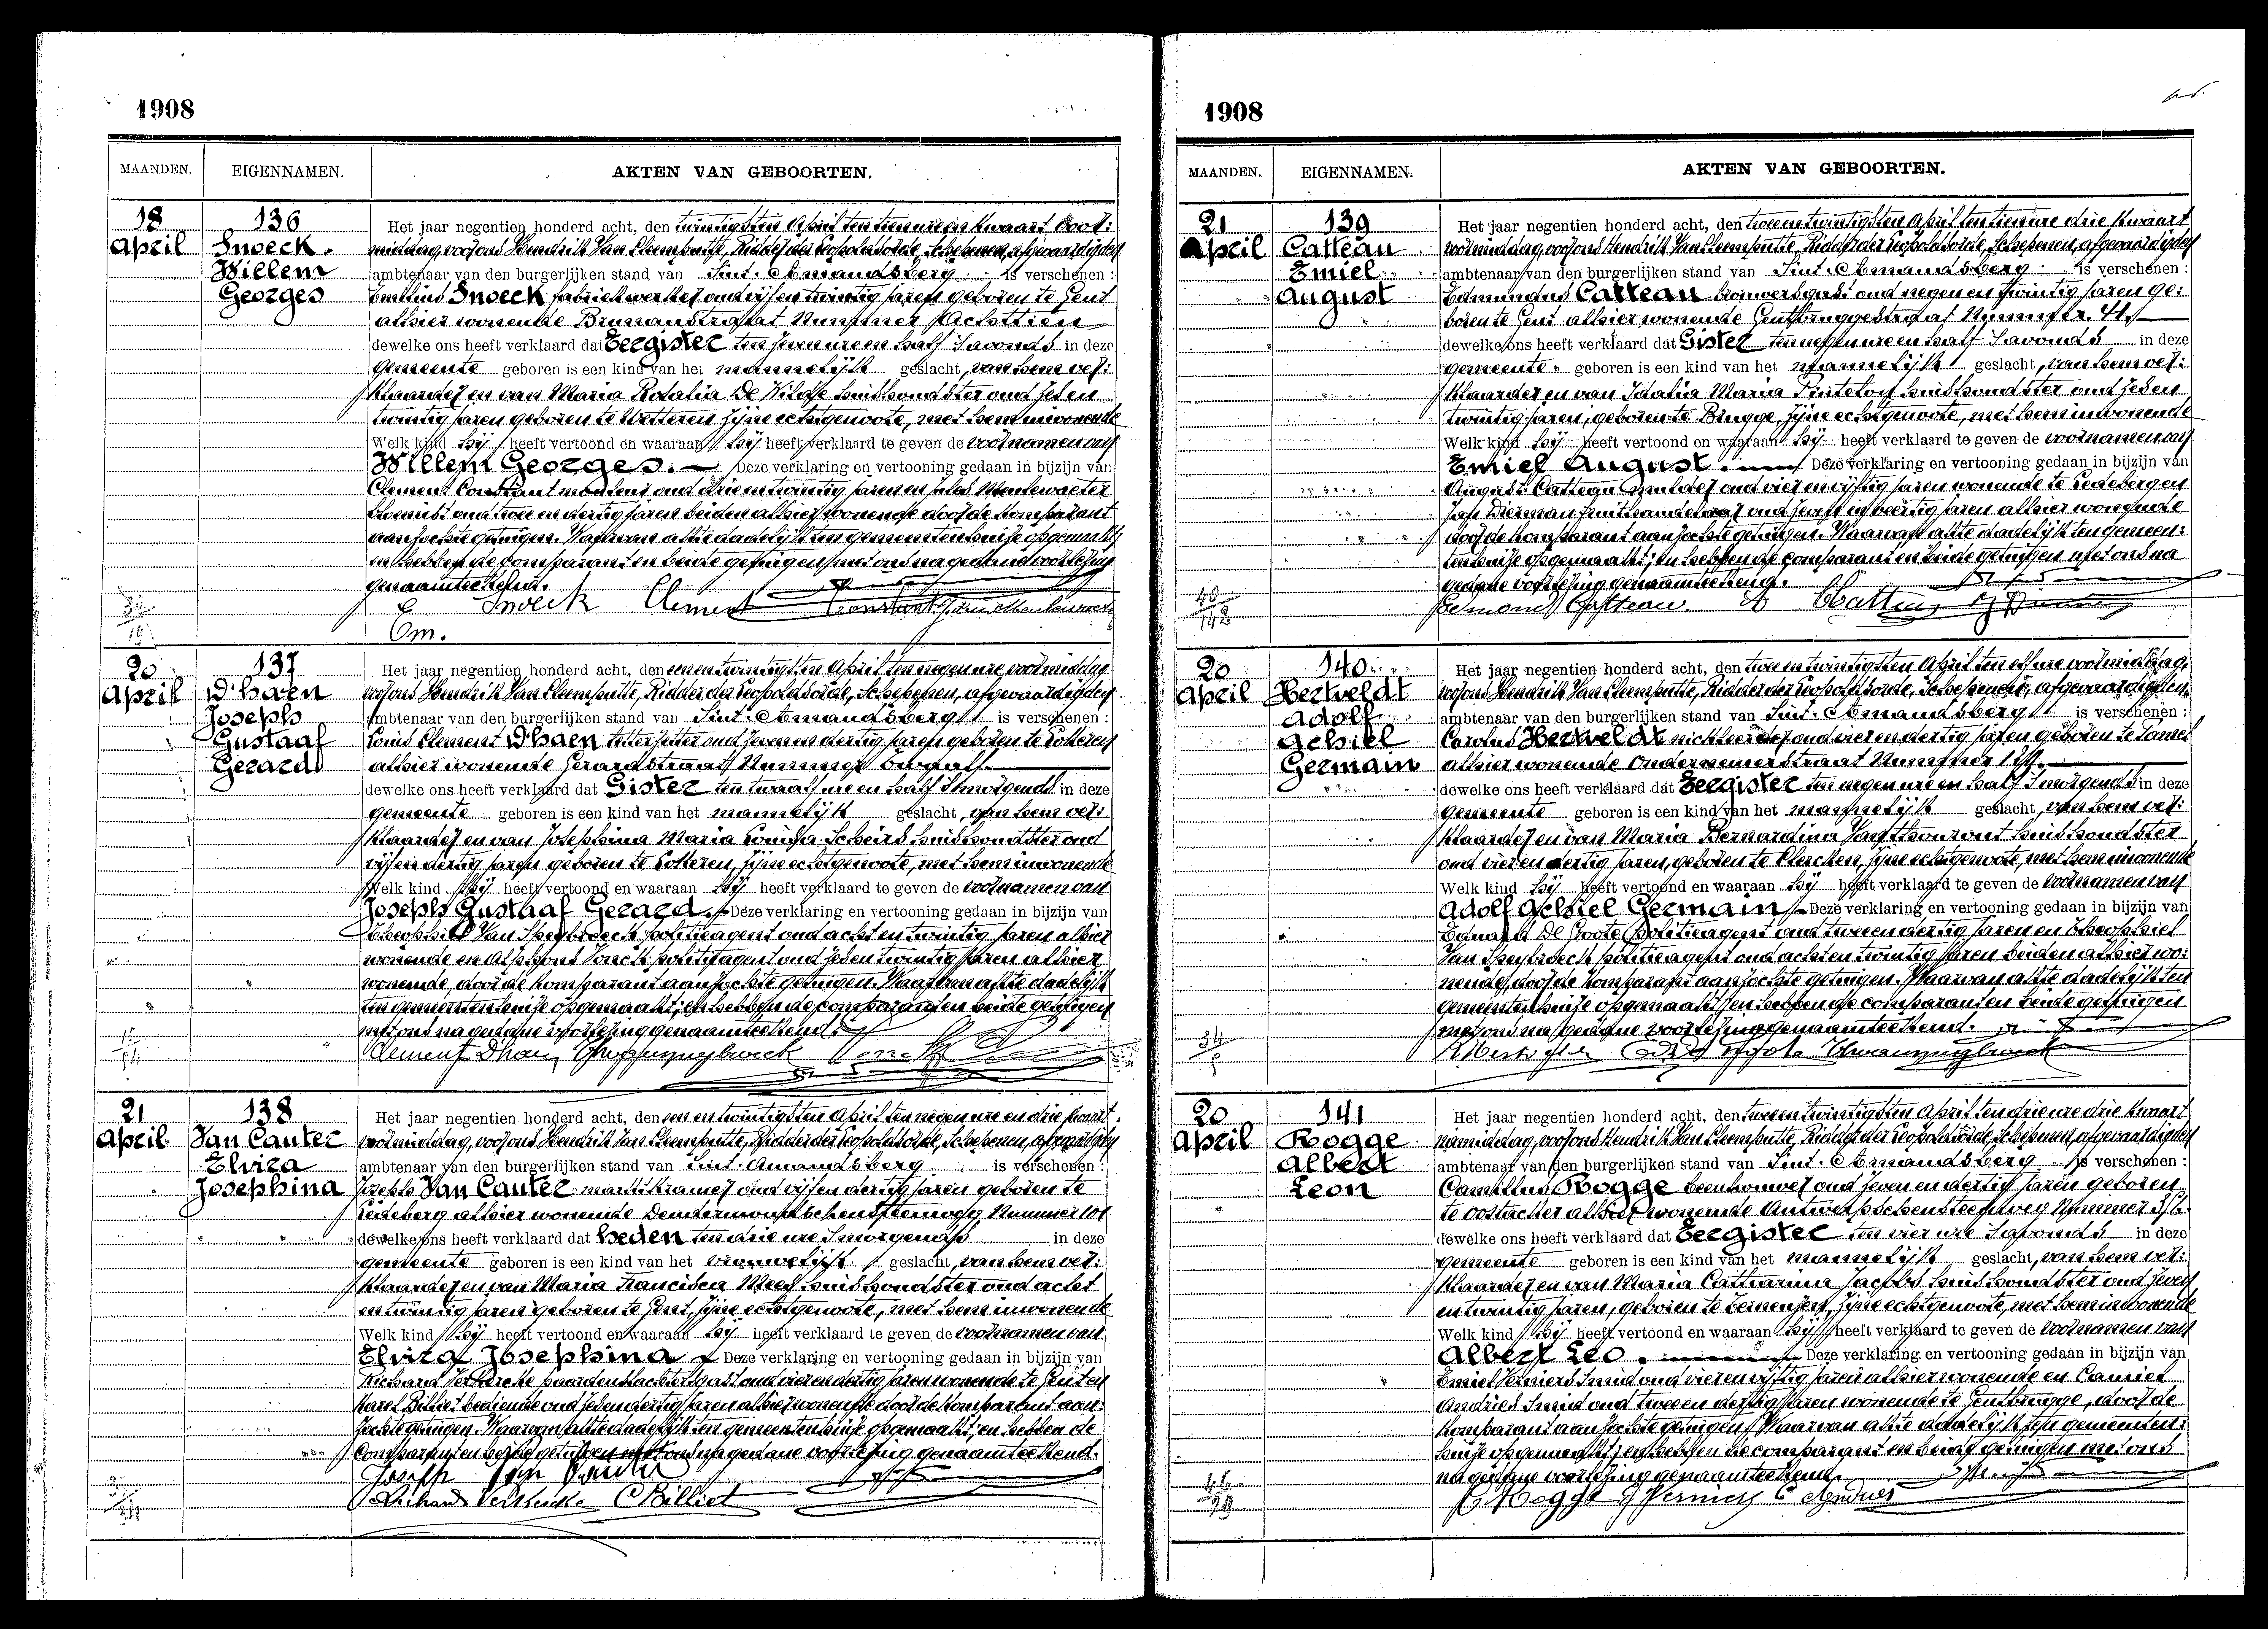 1908
MAANDEN. EIGENNAMEN. AKTEN VAN GEBOORTEN.
18 April
136
Snoeck.
Willem
Georges
Het jaar negentien honderd acht, den twintigsten April ten tien ure en kwaart voor:
middag, voor ons Hendrik Van Cleemputte, Ridder der Leopoldsorde, Schepenen, afgevaardigden
ambtenaar van den burgerlijken stand van Sint-Amandsberg is verschenen :
Emilius Snoeck fabriekwerker oud vijf en twintig jaren geboren te Gent
alhier wonende Brunaustraat Nummer Achttien
dewelke ons heeft verklaard dat Eergister ten zeven ure en half 's avonds in deze
gemeente geboren is een kind van het mannelijk geslacht, van hem ver:
klaarder en van Maria Rosalia De Wilde huishoudster oud zes en
twintig jaren geboren te Wetteren zijne echtgenoote, met hem inwonende
Welk kind hij heeft vertoond en waaraan hij heeft verklaard te geven de voornamen van
Willem Georges. Deze verklaring en vertooning gedaan in bijzijn van
Clement Constant oud drie en twintig jaren en Jules Meulewaeter
oud twee en dertig jaren beiden alhier wonende door de komparant
aanzochte getuigen. Waarvan akte dadelijk ten gemeentenhuize opgemaakt
en hebben de comparant en beide getuigen met ons na gedane voorlezing
genaamteekend.
Snoeck Clement Constant
Em.
20 April
137
D'haen
Joseph
Gustaaf
Gerard
Het jaar negentien honderd acht, den een en twintigsten April ten negen ure voormiddag
voor ons Hendrik Van Cleemputte, Ridder der Leopoldsorde, Schepenen, afgevaardigden
ambtenaar van den burgerlijken stand van Sint-Amandsberg is verschenen :
Louis Clement D'haen letterzetter oud zeven en dertig jaren geboren te Lokeren
alhier wonende Gerardstraat Nummer twaalf.
dewelke ons heeft verklaard dat Gister ten twaalf ure en half 's morgends in deze
gemeente geboren is een kind van het mannelijk geslacht, van hem ver:
klaarder en van Josephina Maria Louisa Scheirs huishoudster oud
vijf en dertig jaren geboren te Lokeren, zijne echtgenoote, met hem inwonende
Welk kind hij heeft vertoond en waaraan hij heeft verklaard te geven de voornamen van
Joseph Gustaaf Gerard. Deze verklaring en vertooning gedaan in bijzijn van
Theophiel Van Speybroeck politieagent oud acht en twintig jaren alhier
wonende en Alphons Jonck politieagent oud zes en twintig jaren alhier
wonende, door de komparant aanzochte getuigen. Waarvan akte dadelijk
ten gemeentenhuize opgemaakt; en hebben de comparant en beide getuigen
met ons na gedane voorlezing genaamteekend.
Clement D'haen
21 April
138
Van Cauter
Elvira
Josephina
Het jaar negentien honderd acht, den een en twintigsten April ten negen ure en drie kwaart
voormiddag, voor ons Hendrik Van Cleemputte, Ridder der Leopoldsorde, Schepenen, afgevaardigden
ambtenaar van den burgerlijken stand van Sint-Amandsberg is verschenen :
Joseph Van Cauter marktkramer oud vijf en dertig jaren geboren te
Ledeberg alhier wonende Dendermondschensteenweg Nummer 101
dewelke ons heeft verklaard dat heden ten drie ure 's morgends in deze
gemeente geboren is een kind van het vrouwelijk geslacht, van hem ver:
klaarder en van Maria Francisca Mees huishoudster oud acht
en twintig jaren geboren te Gent, zijne echtgenoote, met hem inwonende
Welk kind hij heeft vertoond en waaraan hij heeft verklaard te geven de voornamen van
Elvira Josephina Deze verklaring en vertooning gedaan in bijzijn van
Richard Verkercke paardenslachtersgast oud vier en dertig jaren wonende te Gent en
Karel Billiet bediende oud zes en dertig jaren alhier wonende door de komparant aan:
zochte getuigen. Waarvan akte dadelijk ten gemeentenhuize opgemaakt; en hebben de
comparant en beide getuigen met ons na gedane voorlezing genaamteekend.
Joseph Van Cauter
Richard Verkercke C Billiet
1908
MAANDEN. EIGENNAMEN. AKTEN VAN GEBOORTEN.
21 April
139
Catteau
Emiel
August
Het jaar negentien honderd acht, den twee en twintigsten April ten tien ure drie kwaart
voormiddag, voor ons Hendrik Van Cleemputte, Ridder der Leopoldsorde, Schepenen, afgevaardigden
ambtenaar van den burgerlijken stand van Sint-Amandsberg is verschenen :
Edmundus Catteau brouwersgast oud negen en twintig jaren ge:
boren te Gent alhier wonende Gentbruggestraat Nummer 41.
dewelke ons heeft verklaard dat Gister ten negen ure en half 's avonds in deze
gemeente geboren is een kind van het mannelijk geslacht, van hem ver:
klaarder en van Idalia Maria Pintelon huishoudster oud zes en
twintig jaren, geboren te Brugge, zijne echtgenoote, met hem inwonende
Welk kind hij heeft vertoond en waaraan hij heeft verklaard te geven de voornamen van
Emiel August. Deze verklaring en vertooning gedaan in bijzijn van
August Catteau oud vier en vijftig jaren wonende te Ledeberg en
Jan Bierman fruithandelaar oud zeven en veertig jaren alhier wonende
door de komparant aanzochte getuigen. Waarvan akte dadelijk ten gemeen:
tenhuize opgemaakt; en hebben de comparant en beide getuigen met ons na
gedane voorlezing genaamteekend.
Edmond Catteau. A Catteau
40
142
20 April
140
Hertveldt
Adolf
Achiel
Germain
Het jaar negentien honderd acht, den twee en twintigsten April ten elf ure voormiddag,
voor ons Hendrik Van Cleemputte, Ridder der Leopoldsorde, Schepenen, afgevaardigden
ambtenaar van den burgerlijken stand van Sint-Amandsberg is verschenen :
Carolus Hertveldt oud vier en dertig jaren geboren te
alhier wonende Ondernemerstraat Nummer
dewelke ons heeft verklaard dat Eergister ten negen ure en half 's morgends in deze
gemeente geboren is een kind van het mannelijk geslacht, van hem ver:
klaarder en van Maria Bernardina Van Thourout huishoudster
oud vier en dertig jaren, geboren te Clercken, zijne echtgenoote, met hem inwonende
Welk kind hij heeft vertoond en waaraan hij heeft verklaard te geven de voornamen van
Adolf Achiel Germain Deze verklaring en vertooning gedaan in bijzijn van
Eduard De Groote politieagent oud twee en dertig jaren en Theophiel
Van Speybroeck politieagent oud acht en twintig jaren beiden alhier wo:
nende, door de komparant aanzochte getuigen. Waarvan akte dadelijk ten
gemeentenhuize opgemaakt; en hebben de comparant en beide getuigen
met ons na gedane voorlezing genaamteekend.
20 April
141
Rogge
Albert
Leon
Het jaar negentien honderd acht, den twee en twintigsten April ten drie ure drie kwaart
namiddag, voor ons Hendrik Van Cleemputte, Ridder der Leopoldsorde, Schepenen, afgevaardigden
ambtenaar van den burgerlijken stand van Sint-Amandsberg is verschenen :
Camillus Rogge beenhouwer oud zeven en dertig jaren geboren
te Oostacker alhier wonende Antwerpschensteenweg Nummer
dewelke ons heeft verklaard dat Eergister ten vier ure 's avonds in deze
gemeente geboren is een kind van het mannelijk geslacht, van hem ver:
klaarder en van Maria Catharina Jacobs huishoudster oud zeven
en twintig jaren, geboren te Everghem, zijne echtgenoote, met hem inwonende
Welk kind hij heeft vertoond en waaraan hij heeft verklaard te geven de voornamen van
Albert Leo. Deze verklaring en vertooning gedaan in bijzijn van
Emiel Verniers smid oud vier en vijftig jaren alhier wonende en Camiel
Andries smid oud twee en dertig jaren wonende te Gentbrugge, door de
komparant aanzochte getuigen. Waarvan akte dadelijk ten gemeenten:
huize opgemaakt; en hebben de comparant en beide getuigen met ons
na gedane voorlezing genaamteekend.
C Rogge E Verniers C Andries